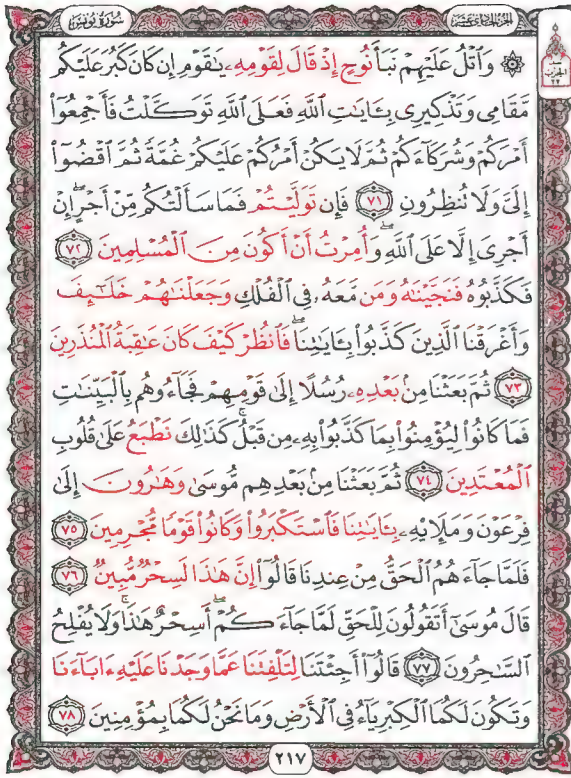 سُورَةُ يُونُسَ
الجُزْءُ الحَادِى عَشَرَ
نصف
الحزب
٢٢
۞ وَٱتْلُ عَلَيْهِمْ نَبَأَ نُوحٍ إِذْ قَالَ لِقَوْمِهِۦ يَٰقَوْمِ إِن كَانَ كَبُرَ عَلَيْكُم
مَّقَامِى وَتَذْكِيرِى بِـَٔايَٰتِ ٱللَّهِ فَعَلَى ٱللَّهِ تَوَكَّلْتُ فَأَجْمِعُوٓا۟
أَمْرَكُمْ وَشُرَكَآءَكُمْ ثُمَّ لَا يَكُنْ أَمْرُكُمْ عَلَيْكُمْ غُمَّةً ثُمَّ ٱقْضُوٓا۟
إِلَىَّ وَلَا تُنظِرُونِ ٧١ فَإِن تَوَلَّيْتُمْ فَمَا سَأَلْتُكُم مِّنْ أَجْرٍ ۖ إِنْ
أَجْرِىَ إِلَّا عَلَى ٱللَّهِ ۖ وَأُمِرْتُ أَنْ أَكُونَ مِنَ ٱلْمُسْلِمِينَ ٧٢
فَكَذَّبُوهُ فَنَجَّيْنَٰهُ وَمَن مَّعَهُۥ فِى ٱلْفُلْكِ وَجَعَلْنَٰهُمْ خَلَٰٓئِفَ
وَأَغْرَقْنَا ٱلَّذِينَ كَذَّبُوا۟ بِـَٔايَٰتِنَا ۖ فَٱنظُرْ كَيْفَ كَانَ عَٰقِبَةُ ٱلْمُنذَرِينَ
٧٣ ثُمَّ بَعَثْنَا مِنۢ بَعْدِهِۦ رُسُلًا إِلَىٰ قَوْمِهِمْ فَجَآءُوهُم بِٱلْبَيِّنَٰتِ
فَمَا كَانُوا۟ لِيُؤْمِنُوا۟ بِمَا كَذَّبُوا۟ بِهِۦ مِن قَبْلُ ۚ كَذَٰلِكَ نَطْبَعُ عَلَىٰ قُلُوبِ
ٱلْمُعْتَدِينَ ٧٤ ثُمَّ بَعَثْنَا مِنۢ بَعْدِهِم مُّوسَىٰ وَهَٰرُونَ إِلَىٰ
فِرْعَوْنَ وَمَلَإِي۟هِۦ بِـَٔايَٰتِنَا فَٱسْتَكْبَرُوا۟ وَكَانُوا۟ قَوْمًا مُّجْرِمِينَ ٧٥
فَلَمَّا جَآءَهُمُ ٱلْحَقُّ مِنْ عِندِنَا قَالُوٓا۟ إِنَّ هَٰذَا لَسِحْرٌ مُّبِينٌ ٧٦
قَالَ مُوسَىٰٓ أَتَقُولُونَ لِلْحَقِّ لَمَّا جَآءَكُمْ ۖ أَسِحْرٌ هَٰذَا وَلَا يُفْلِحُ
ٱلسَّٰحِرُونَ ٧٧ قَالُوٓا۟ أَجِئْتَنَا لِتَلْفِتَنَا عَمَّا وَجَدْنَا عَلَيْهِ ءَابَآءَنَا
وَتَكُونَ لَكُمَا ٱلْكِبْرِيَآءُ فِى ٱلْأَرْضِ وَمَا نَحْنُ لَكُمَا بِمُؤْمِنِينَ ٧٨
٢١٧